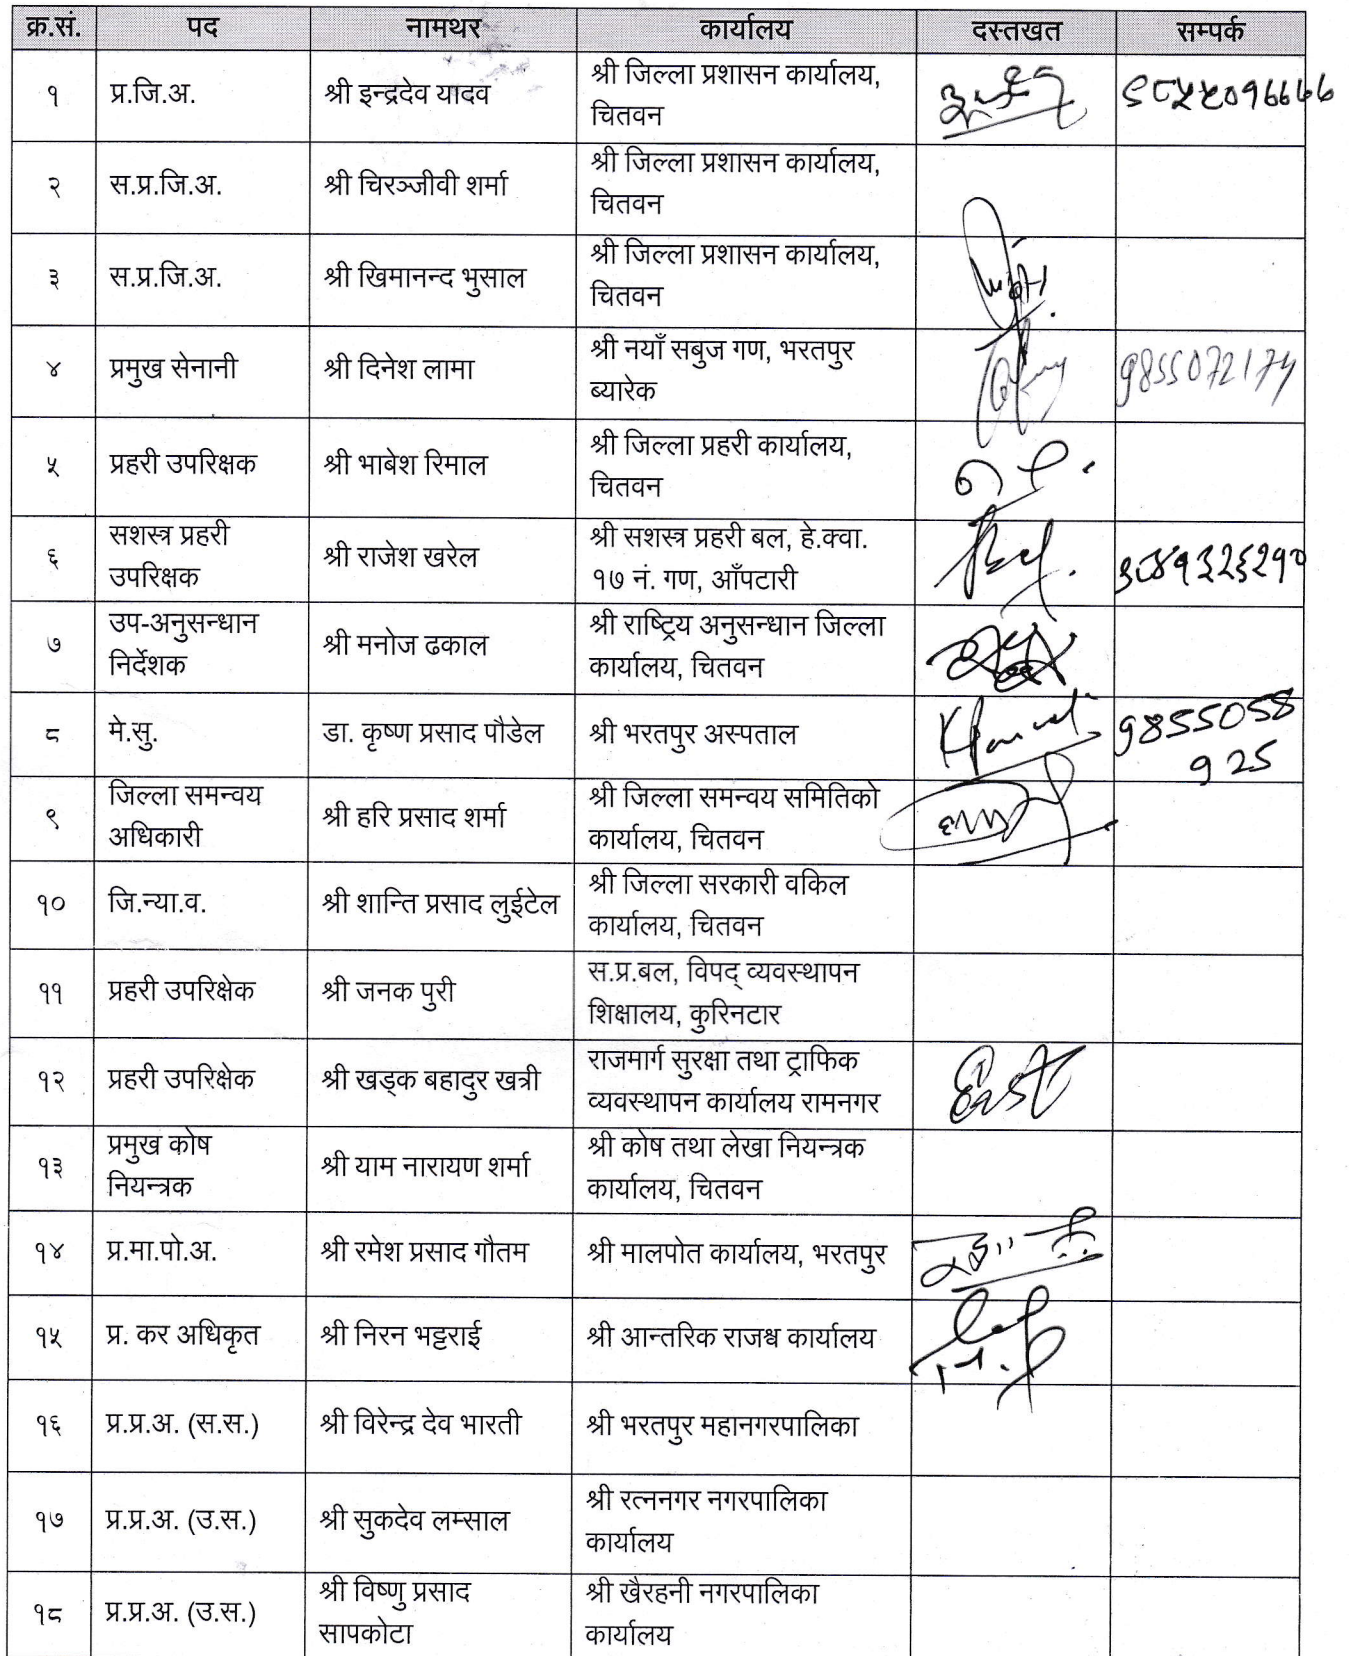 क्र.सं. पद नामथर कार्यालय दस्तखत सम्पर्क
१ प्र.जि.अ. श्री इन्द्रदेव यादव श्री जिल्ला प्रशासन कार्यालय,
चितवन
२ स.प्र.जि.अ. श्री चिरञ्जीवी शर्मा श्री जिल्ला प्रशासन कार्यालय,
चितवन
३ स.प्र.जि.अ. श्री खिमानन्द भुसाल श्री जिल्ला प्रशासन कार्यालय,
चितवन
४ प्रमुख सेनानी श्री दिनेश लामा श्री नयाँ सबुज गण, भरतपुर
ब्यारेक 9855072174
५ प्रहरी उपरिक्षक श्री भाबेश रिमाल श्री जिल्ला प्रहरी कार्यालय,
चितवन
६ सशस्त्र प्रहरी
उपरिक्षक श्री राजेश खरेल श्री सशस्त्र प्रहरी बल, हे.क्वा.
१७ नं. गण, आँपटारी
७ उप-अनुसन्धान
निर्देशक श्री मनोज ढकाल श्री राष्ट्रिय अनुसन्धान जिल्ला
कार्यालय, चितवन
८ मे.सु. डा. कृष्ण प्रसाद पौडेल श्री भरतपुर अस्पताल 9855058
925
९ जिल्ला समन्वय
अधिकारी श्री हरि प्रसाद शर्मा श्री जिल्ला समन्वय समितिको
कार्यालय, चितवन
१० जि.न्या.व. श्री शान्ति प्रसाद लुईटेल श्री जिल्ला सरकारी वकिल
कार्यालय, चितवन
११ प्रहरी उपरिक्षेक श्री जनक पुरी स.प्र.बल, विपद् व्यवस्थापन
शिक्षालय, कुरिनटार
१२ प्रहरी उपरिक्षेक श्री खड्क बहादुर खत्री राजमार्ग सुरक्षा तथा ट्राफिक
व्यवस्थापन कार्यालय रामनगर
१३ प्रमुख कोष
नियन्त्रक श्री याम नारायण शर्मा श्री कोष तथा लेखा नियन्त्रक
कार्यालय, चितवन
१४ प्र.मा.पो.अ. श्री रमेश प्रसाद गौतम श्री मालपोत कार्यालय, भरतपुर
१५ प्र. कर अधिकृत श्री निरन भट्टराई श्री आन्तरिक राजश्व कार्यालय
१६ प्र.प्र.अ. (स.स.) श्री विरेन्द्र देव भारती श्री भरतपुर महानगरपालिका
१७ प्र.प्र.अ. (उ.स.) श्री सुकदेव लम्साल श्री रत्ननगर नगरपालिका
कार्यालय
१८ प्र.प्र.अ. (उ.स.) श्री विष्णु प्रसाद
सापकोटा श्री खैरहनी नगरपालिका
कार्यालय